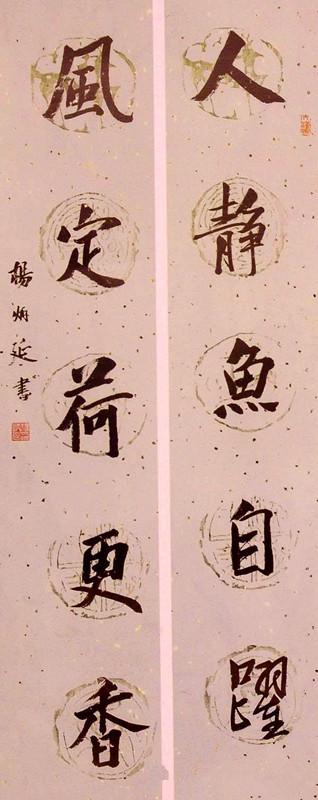 人静魚自躍
風定荷更香
楊炳延書